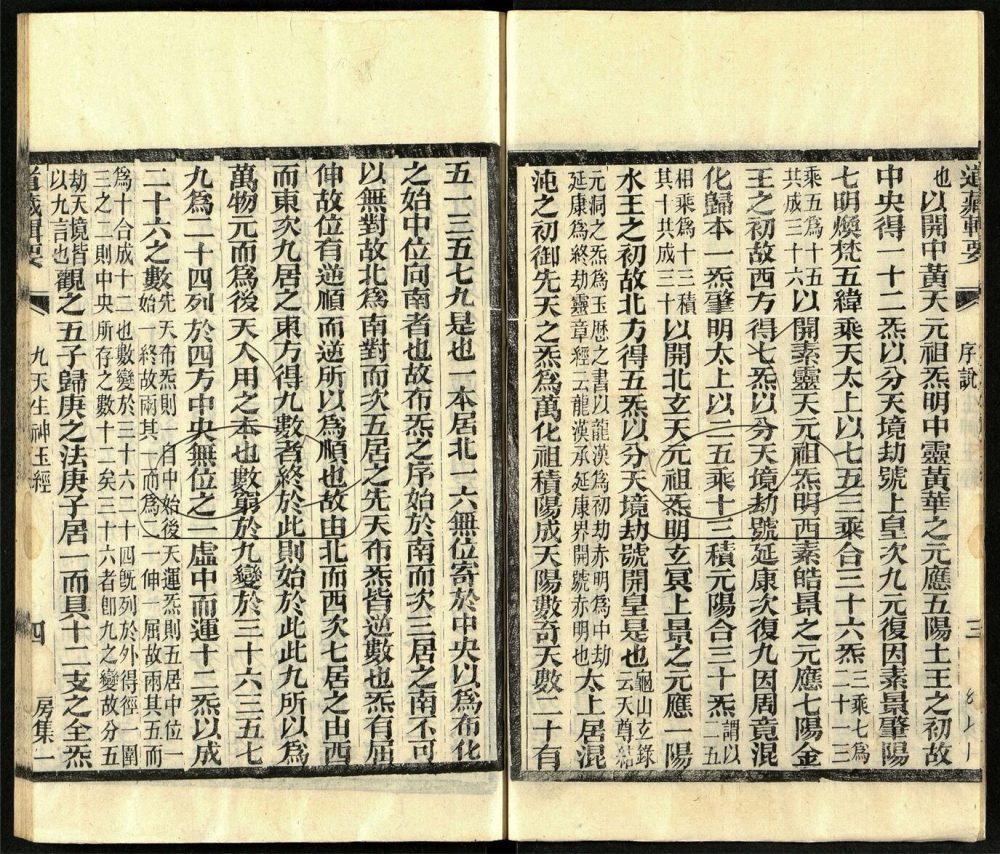 道藏輯要 序說 三
也以開中黃天元祖炁明中靈黃華之元應五陽土王之初故
中央得一十二炁以分天境劫號上皇次九元復因素景肇陽
七明煥梵五緯乘天太上以七五三乘合三十六炁三乘七爲二十一三
乘五爲十五共成三十六以開素靈天元祖炁明西素皓景之元應七陽金
王之初故西方得七炁以分天境劫號延康次復九因周竟混
化歸本一炁肇明太上以二五乘十三積元陽合三十炁謂以二五
相乘爲十三積其十共成三十以開北玄天元祖炁明玄冥上景之元應一陽
水王之初故北方得五炁以分天境劫號開皇是也龜山玄錄云天尊結
元洞之炁爲玉歷之書以龍漢爲初劫赤明爲中劫延康爲終劫靈章經云龍漢承延康界開號赤明也太上居混
沌之初御先天之炁爲萬化祖積陽成天陽數奇天數二十有
五一三五七九是也一本居北一六無位寄於中央以爲布化
之始中位向南者也故布炁之序始於南而次三居之南不可
以無對故北爲南對而次五居之先天布炁皆逆數也炁有屈
伸故位有逆順而逆所以爲順也故由北而西次七居之由西
而東次九居之東方得九數者終於此則始於此此九所以爲
萬物元而爲後天入用之本也數窮於九變於三十六三五七
九爲二十四列於四方中央無位之一虛中而運十二炁以成
三十六之數先天布炁則一自中始後天運炁則五居中位一始一終故兩其一而爲二一伸一屈故兩其五而
爲十合成十二也數變於三十六二十四旣列於外得徑一圍三之二則中央所存之數十二矣三十六者卽九之變故分五
劫天境皆以九言也觀之五子歸庚之法庚子居一而具十二支之全炁
道藏輯要 九天生神玉經 四 房集一